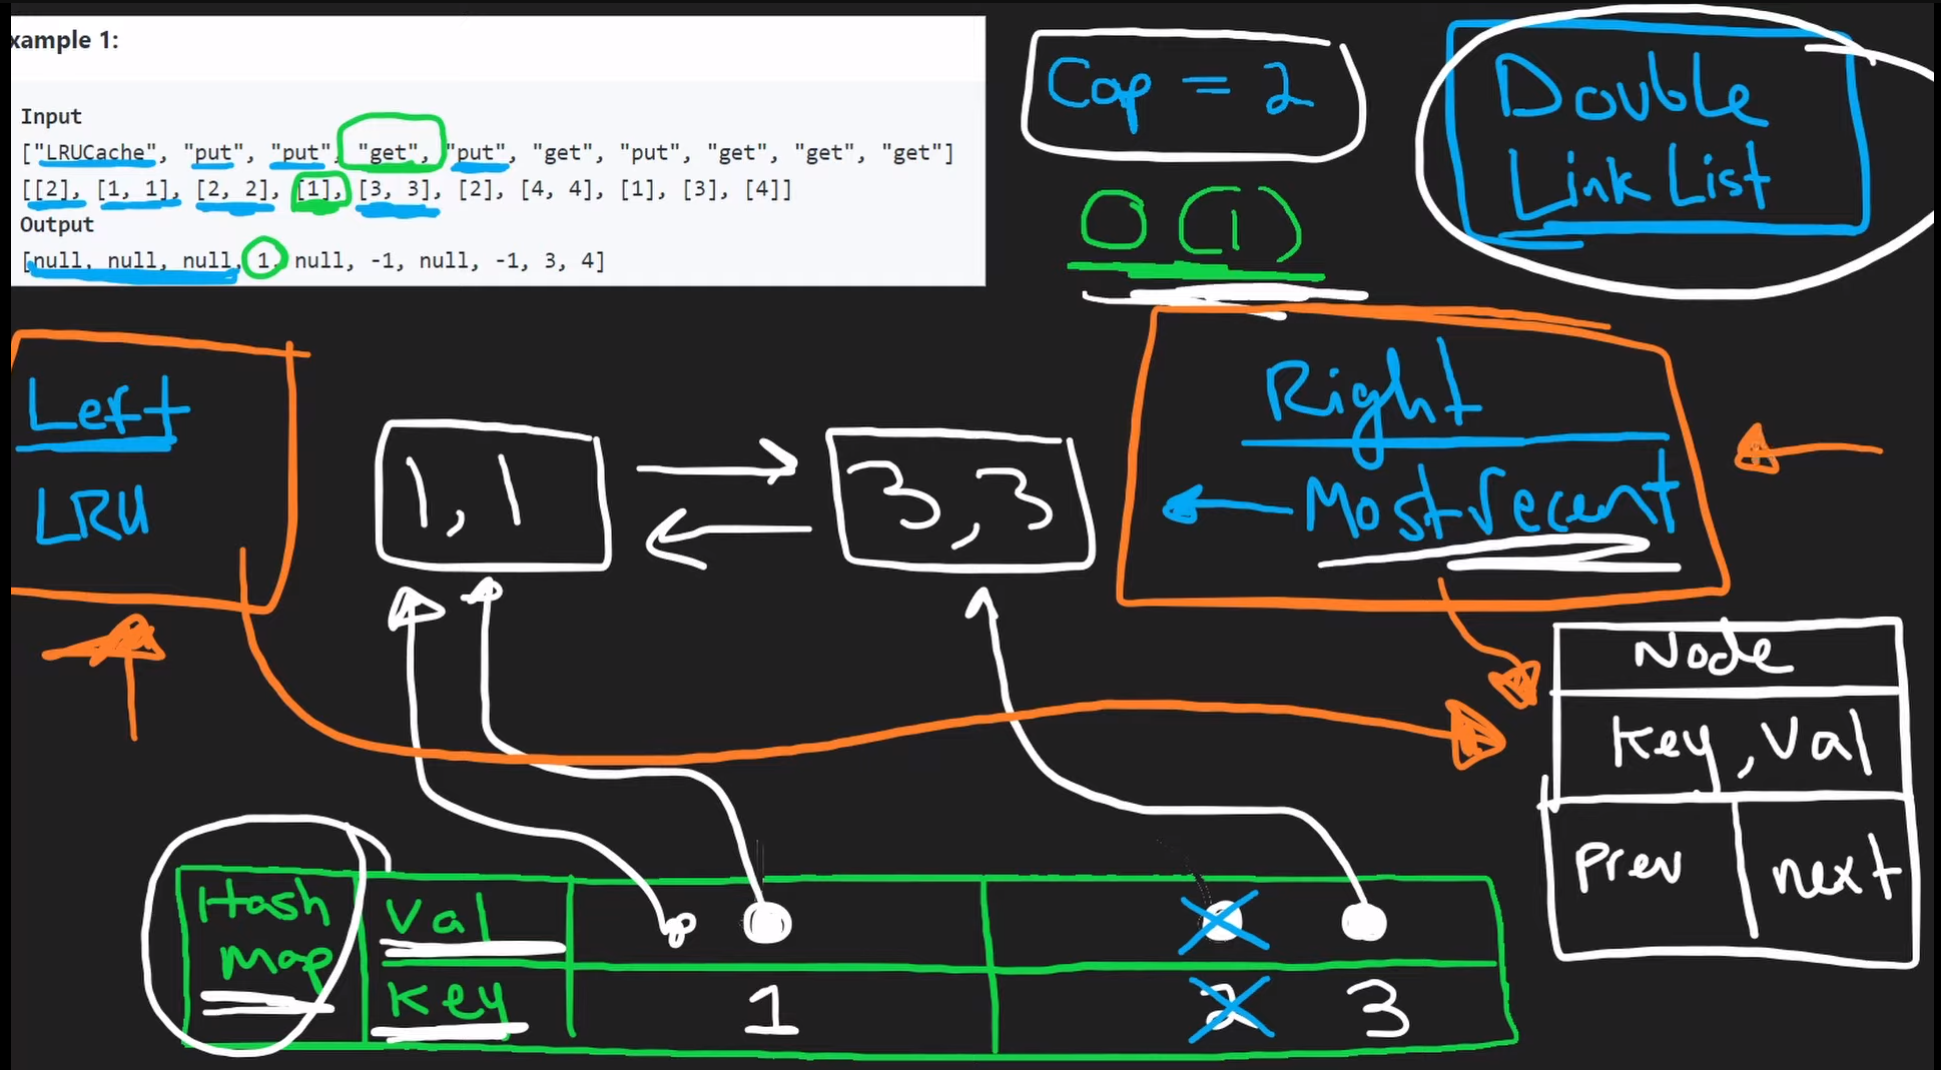 xample 1:
Input
["LRUCache", "put", "put", "get", "put", "get", "put", "get", "get", "get"]
[[2], [1, 1], [2, 2], [1], [3, 3], [2], [4, 4], [1], [3], [4]]
Output
[null, null, null, 1, null, -1, null, -1, 3, 4]
Cap = 2
O(1)
Double
Link List
Left
LRU
1,1
3,3
Right
Most recent
Node
Key, Val
Prev next
Hash
Map
Val
Key
1 2 3